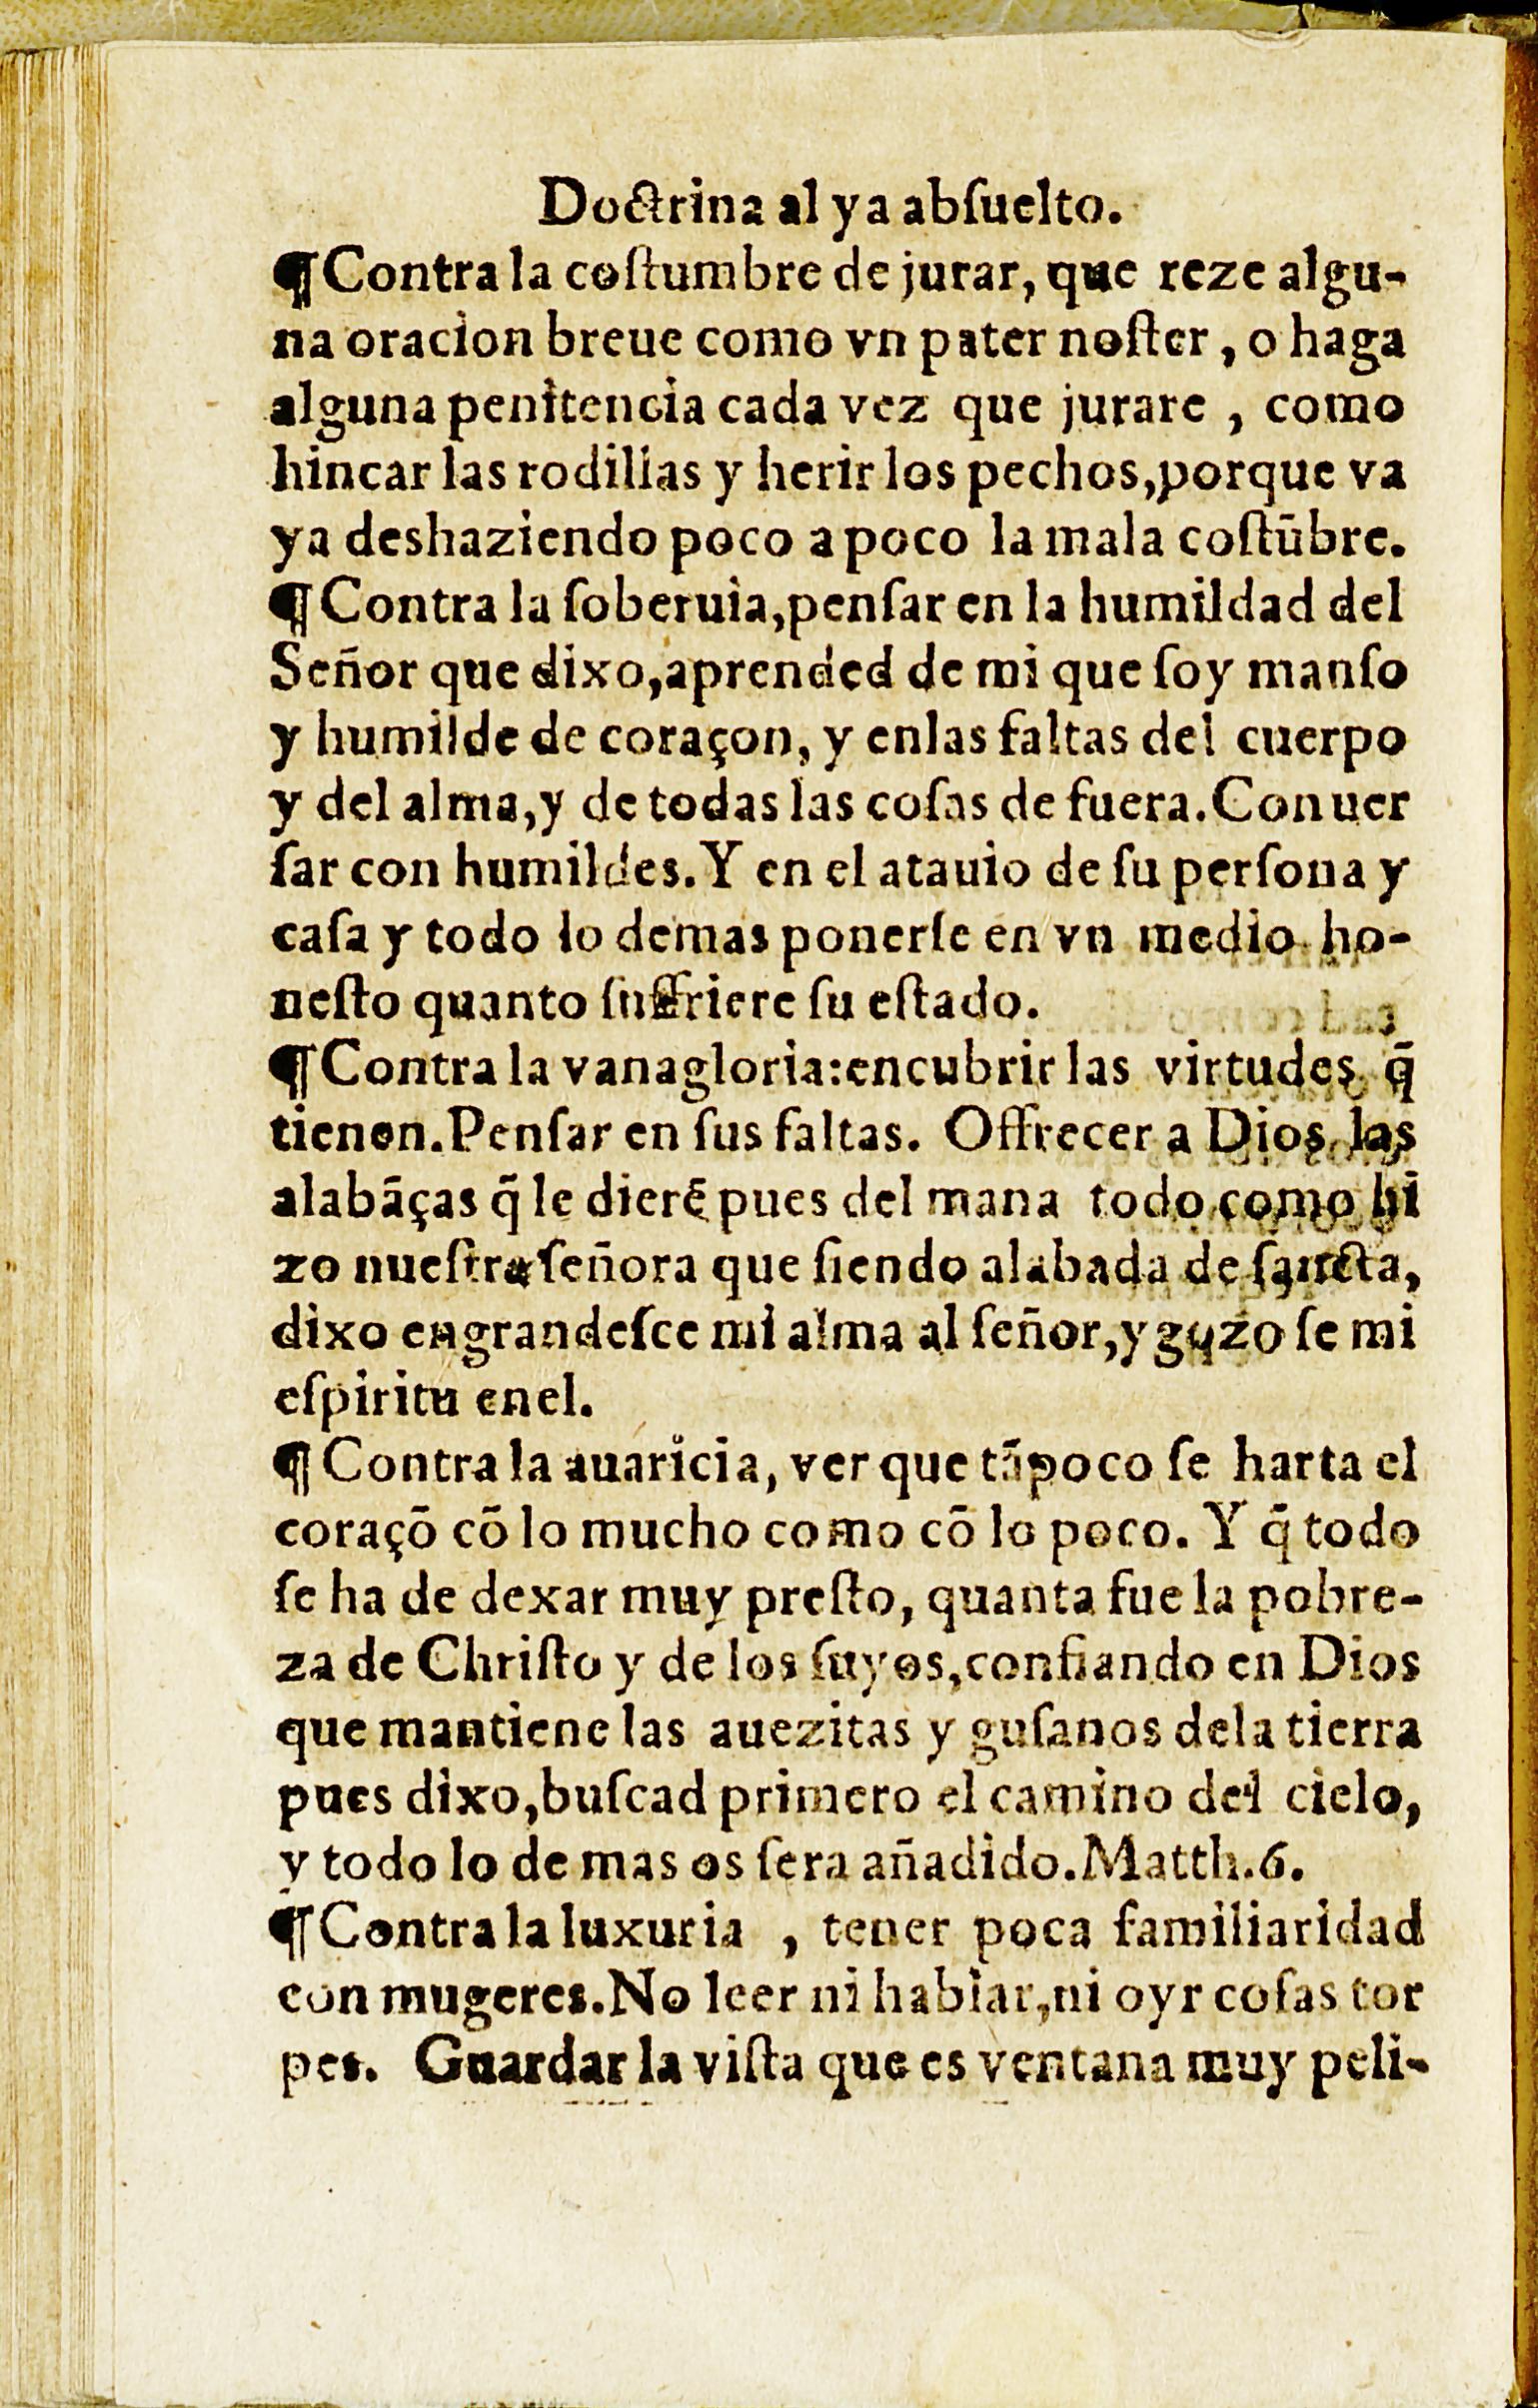 Doctrina al ya abſuelto.
¶Contra la coſtumbre de jurar, que reze algu-
na oracion breue como vn pater noſter, o haga
alguna penitencia cada vez que jurare , como
hincar las rodillas y herir los pechos,porque va
ya deshaziendo poco a poco la mala coſtūbre.
¶Contra la ſoberuia,penſar en la humildad del
Señor que dixo,aprended de mi que ſoy manſo
y humilde de coraçon, y enlas faltas del cuerpo
y del alma,y de todas las coſas de fuera.Conuer
ſar con humildes.Y en el atauio de ſu perſona y
caſa y todo lo demas ponerſe en vn medio ho-
neſto quanto ſuffriere ſu eſtado.
¶Contra la vanagloria:encubrir las virtudes q̄
tienen.Penſar en ſus faltas. Offrecer a Dios las
alabāças q̄ le dierē pues del mana todo como hi
zo nueſtra ſeñora que ſiendo alabada de ſancta,
dixo engrandeſce mi alma al ſeñor,y gozo ſe mi
eſpiritu enel.
¶ Contra la auaricia, ver que tāpoco ſe harta el
coraçō cō lo mucho como cō lo poco. Y q̄ todo
ſe ha de dexar muy preſto, quanta fue la pobre-
za de Chriſto y de los ſuyos,confiando en Dios
que mantiene las auezitas y guſanos dela tierra
pues dixo,buſcad primero el camino del cielo,
y todo lo de mas os ſera añadido.Matth.6.
¶Contra la luxuria , tener poca familiaridad
con mugeres.No leer ni hablar,ni oyr coſas tor
pes. Guardar la viſta que es ventana muy peli-